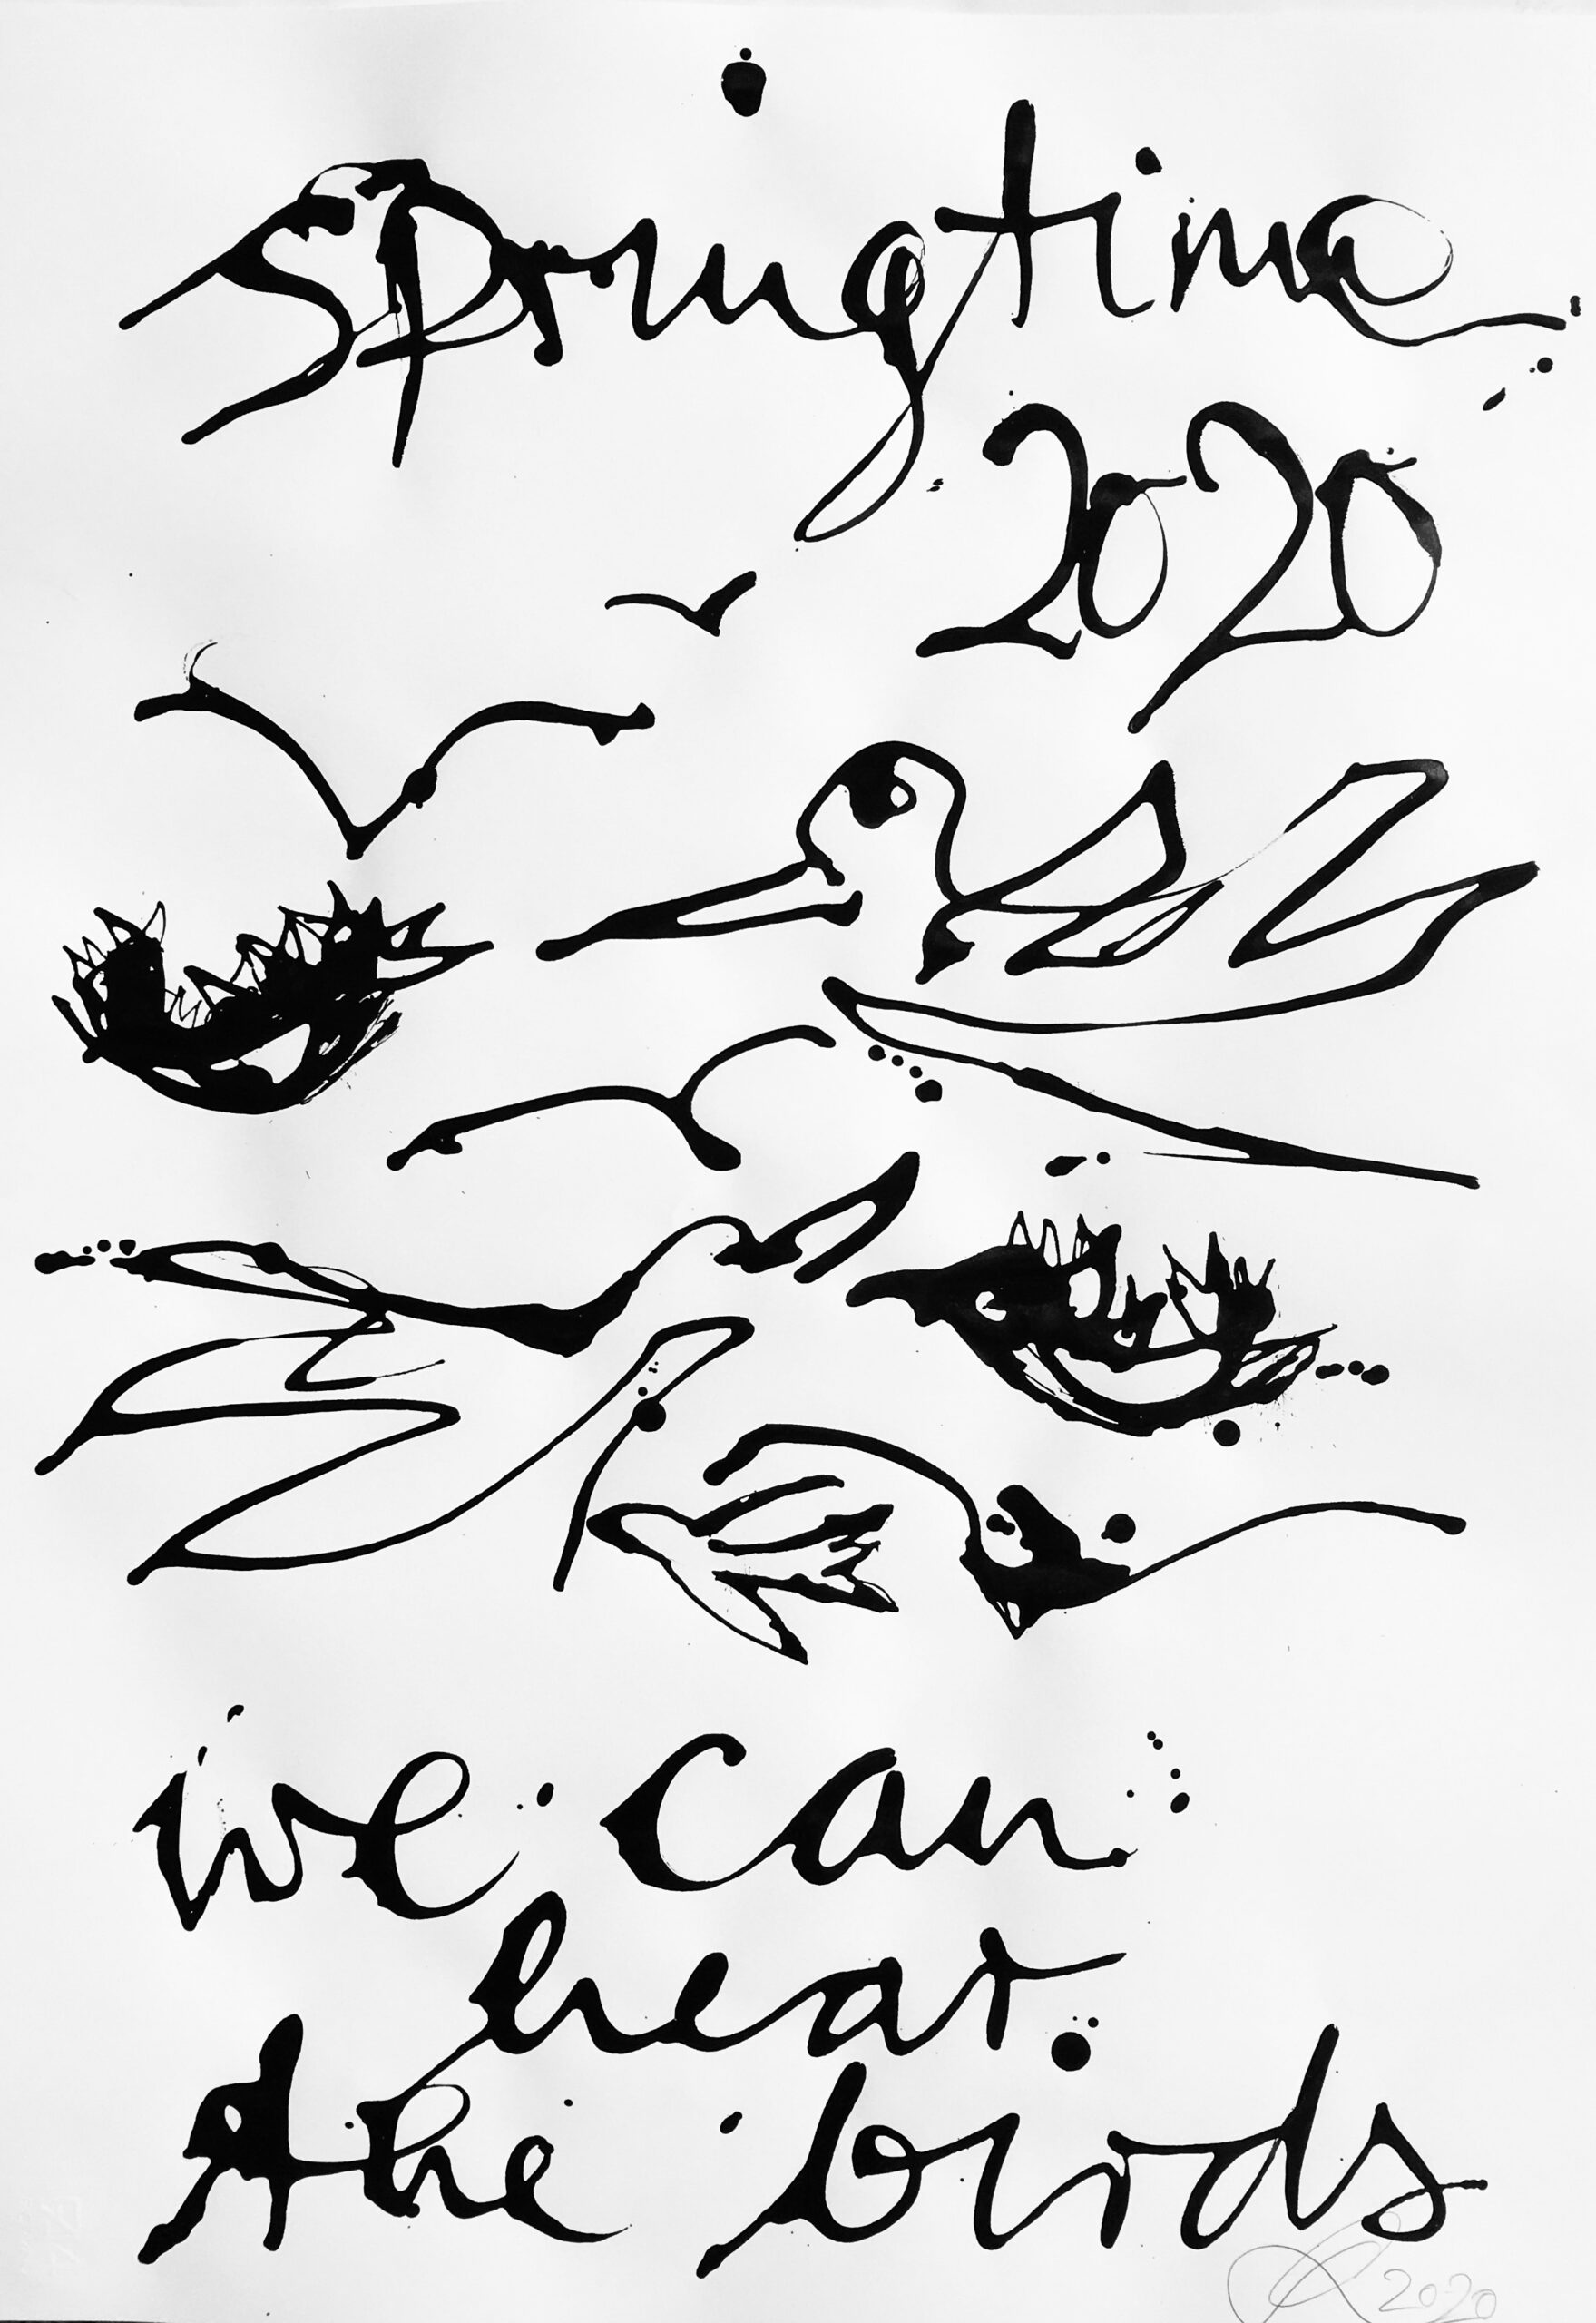 Springtime
2020
we can
hear
the birds
2020